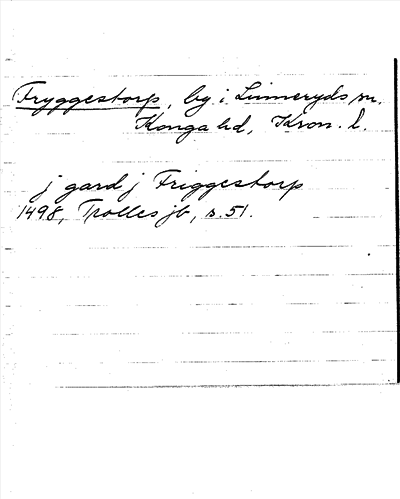 Fryggestorp, by i Linneryds sn.
Konga hd, Kron. l.
j gard j Friggestorp
1498, Trolles jb, s. 51.